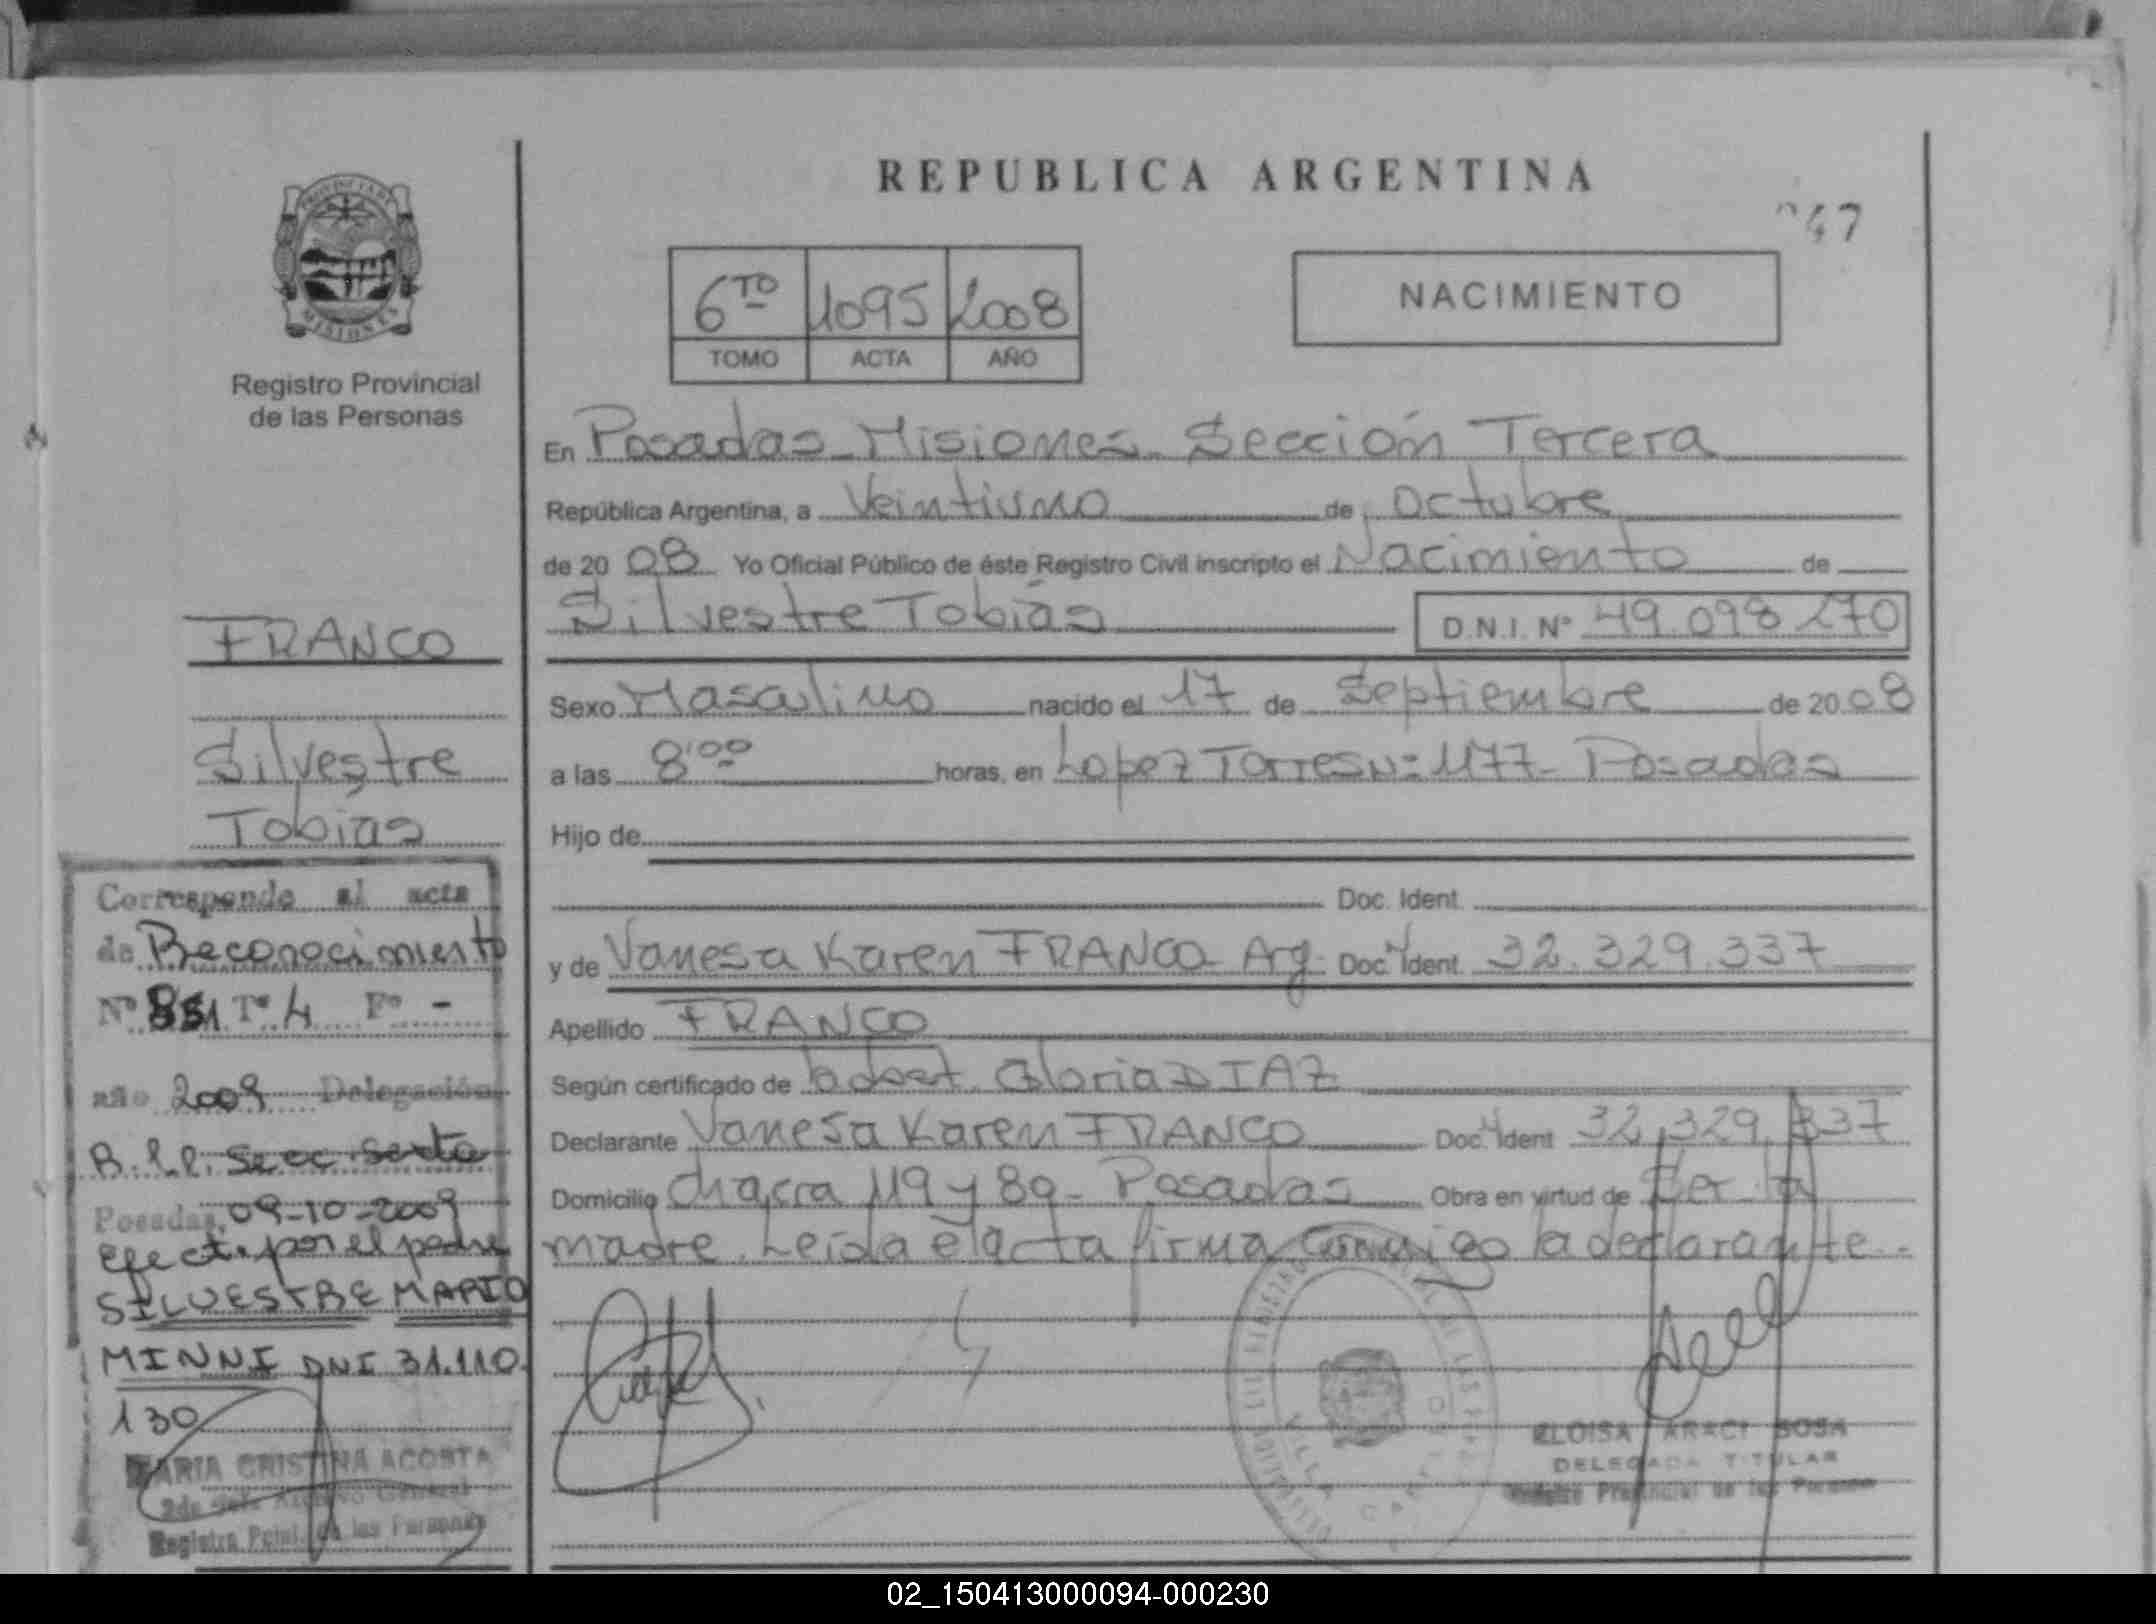 REPUBLICA ARGENTINA
47
6TO 1095 2008
TOMO ACTA AÑO
NACIMIENTO
PROVINCIA DE
MISIONES
Registro Provincial
de las Personas
En Posadas - Misiones - Sección Tercera
República Argentina, a Veintiuno de Octubre
de 2008 Yo Oficial Público de éste Registro Civil inscripto el Nacimiento de
Silvestre Tobías D.N.I. Nº 49.098.270
Sexo Masculino nacido el 17 de Septiembre de 2008
a las 8'00 horas, en Lopez Torres Nº 1177 - Posadas
Hijo de
Doc. Ident.
y de Vanesa Karen FRANCO - Arg. Doc. Ident. 32.329.337
Apellido FRANCO
Según certificado de la obst. Gloria DIAZ
Declarante Vanesa Karen FRANCO Doc. Ident 32.329.337
Domicilio chacra 119 y 89 - Posadas Obra en virtud de Ser la
madre. Leída el acta firma conmigo la declarante.-
ELOISA ARACI SOSA
DELEGADA TITULAR
Registro Provincial de las Personas
FRANCO
Silvestre
Tobías
Corresponde al acta
de Reconocimiento
Nº 851 Tº 4 Fº -
año 2009 Delegación
Posadas, 09-10-2009
efect. por el padre
SILVESTRE MARIO
MINNI DNI 31.110.
130
MARIA CRISTINA ACOSTA
Registro Pcial. de las Personas
02_150413000094-000230